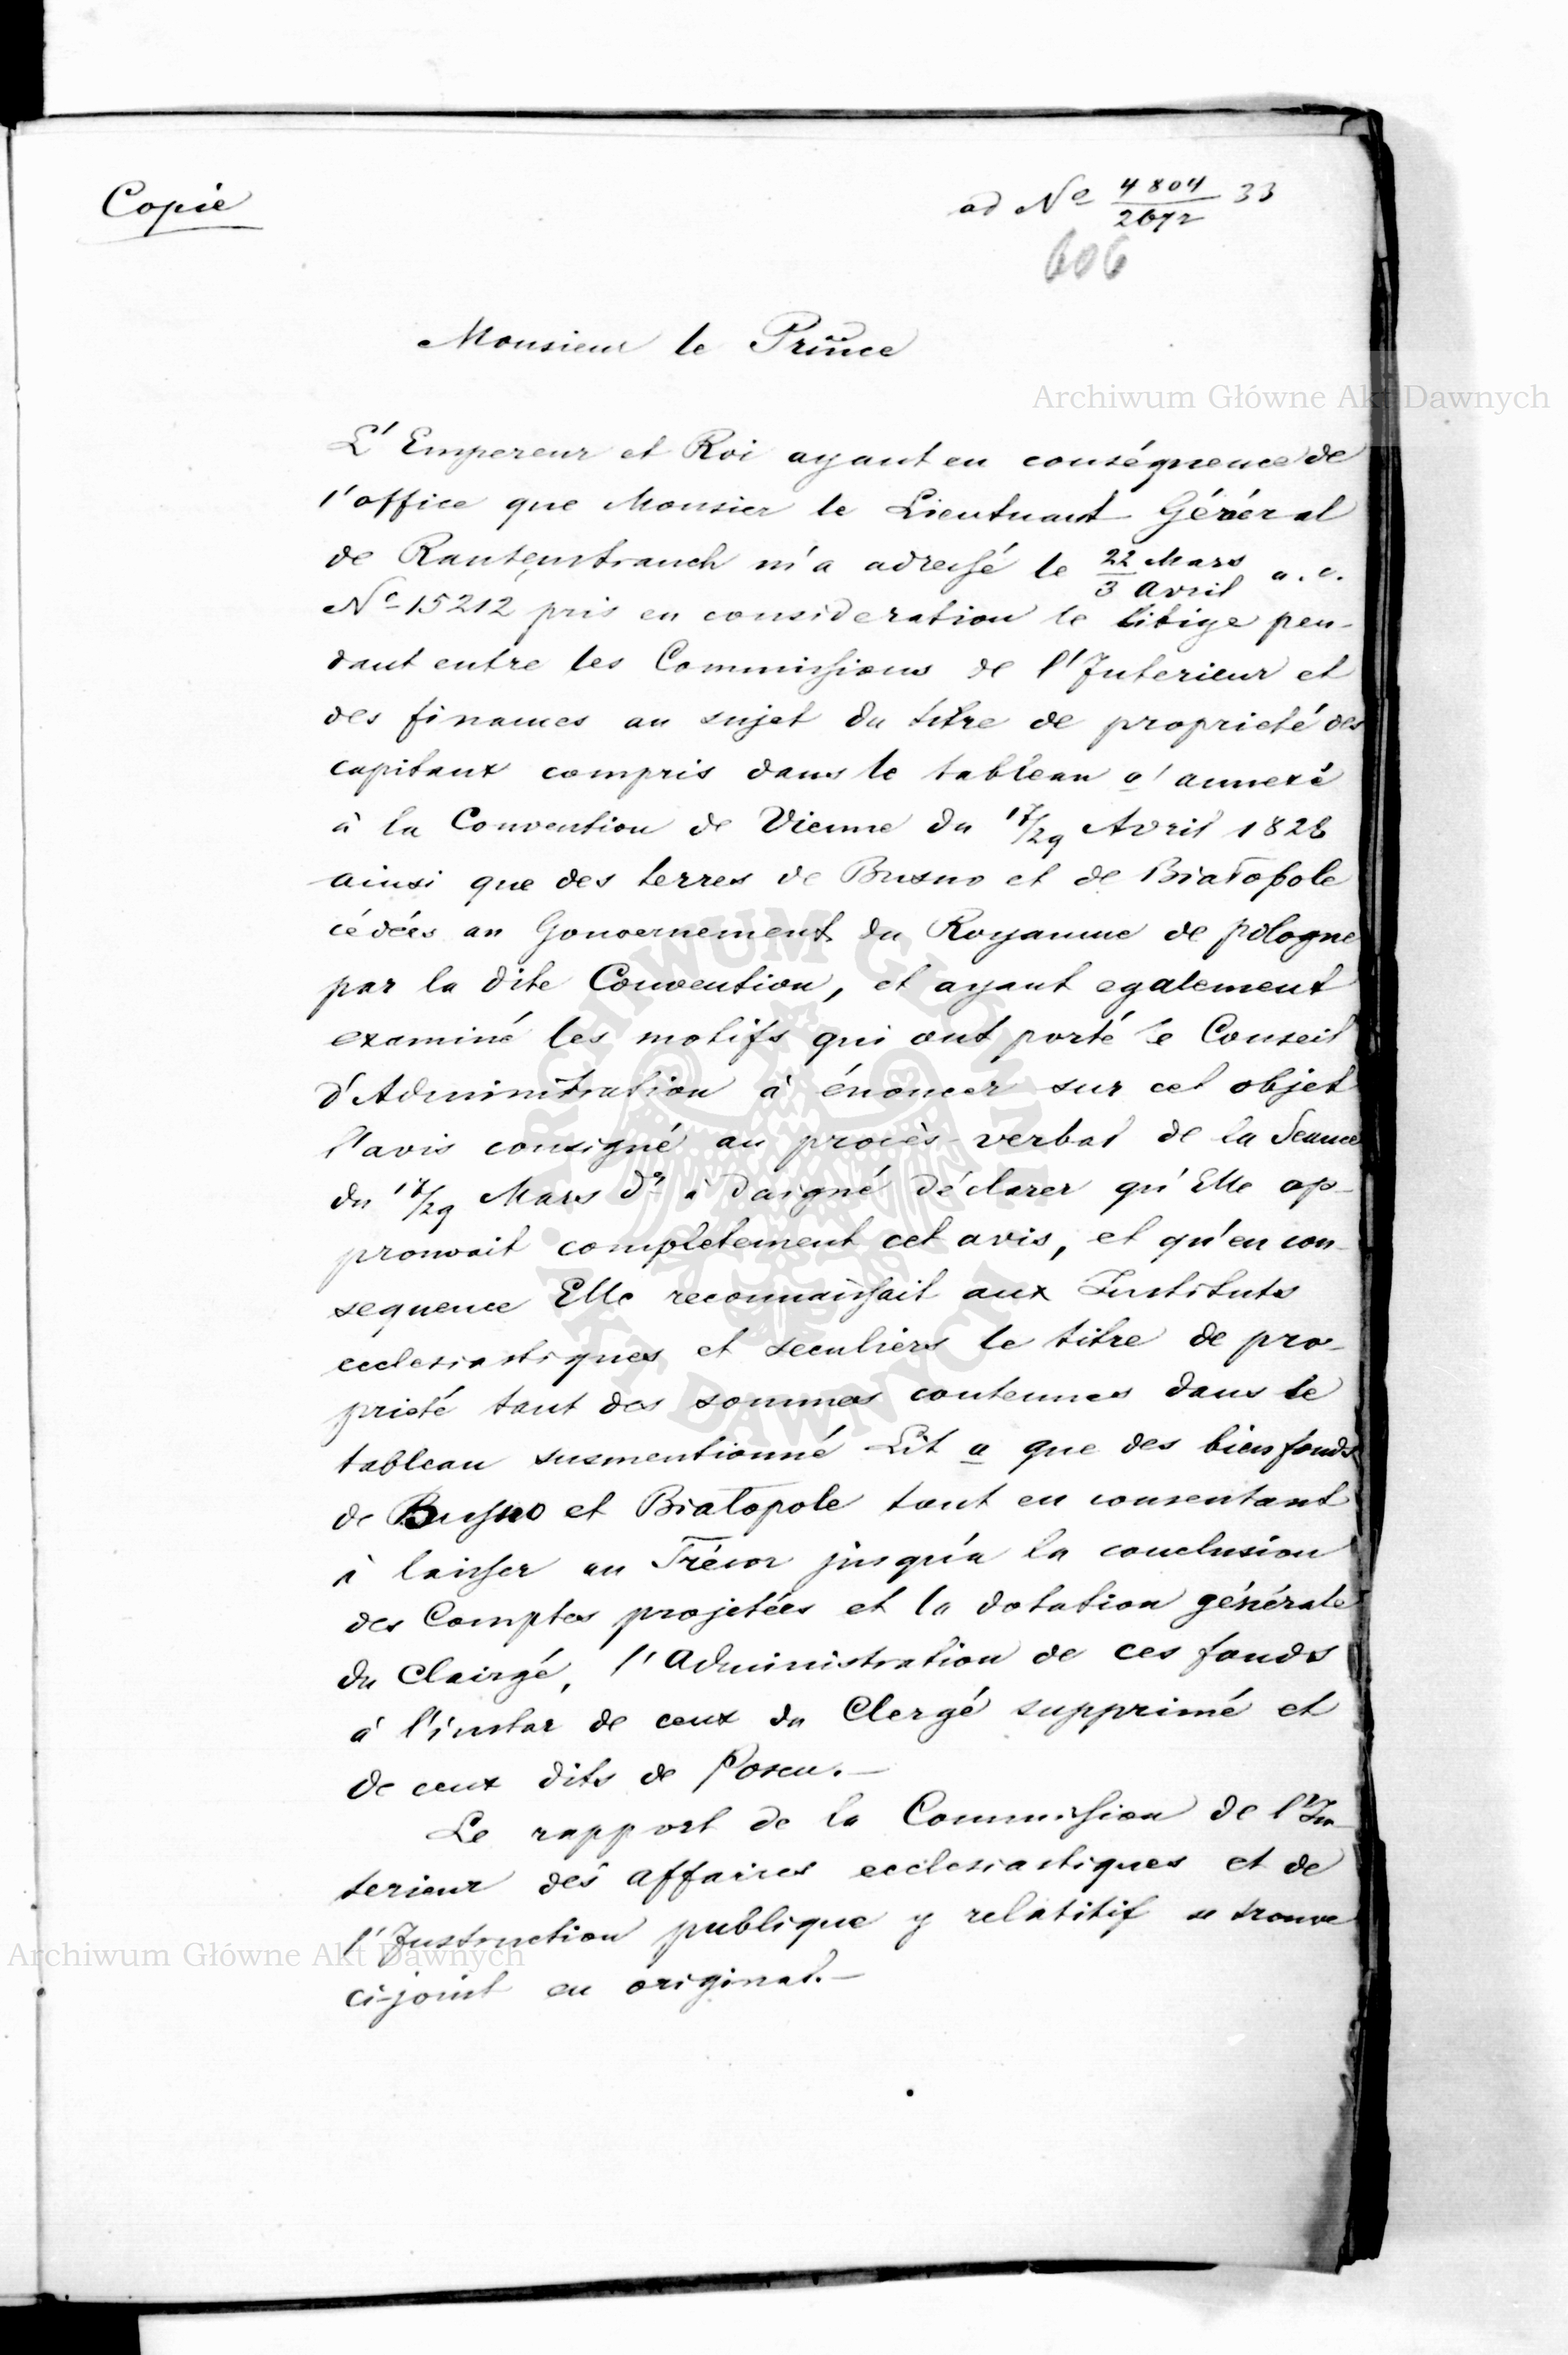 Copie
ad No 4804/2672 33
606
Monsieur le Prince
Archiwum Główne Akt Dawnych
L'Empereur et Roi ayant en conséquence de
l'office que Monsier le Lieutnant Général
de Rautenstrauch m'a adressé le 22 Mars/3 Avril a. c.
No 15212 pris en consideration le litige pen-
dant entre les Commissions de l'Interieur et
des finances au sujet du titre de proprieté des
capitaux compris dans le tableau a annexé
à la Convention de Vienne du 17/29 Avril 1828
ainsi que des terres de Busno et de Białopole
cédées au Gouvernement du Royaume de pologne
par la dite Convention, et ayant egalement
examiné les motifs qui ont porté le Conseil
d'Administration à énoncer sur cet objet
l'avis consigné au procès-verbal de la Seance
du 17/29 Mars do à daigné déclarer qu'Elle ap-
prouvait completement cet avis, et qu'en con-
sequence Elle reconnaissait aux Instituts
ecclesiastiques et seculiers le titre de pro-
prieté tant des sommes contenues dans le
tableau susmentionné Lit a que des bienfonds
de Busno et Białopole tout en consentant
à laisser au Trésor jusqu'a la conclusion
des Comptes projetées et la dotation générale
du Clairgé, l'Administration de ces fonds
à l'instar de ceux du Clergé supprimé et
de ceux dits de Posen.—
Le rapport de la Commission de l'In-
terieur des affaires ecclesiastiques et de
l'Instruction publique y relatitif se trouve
Archiwum Główne Akt Dawnych
ci-joint en original.—
ARCHIWUM GŁÓWNE AKT DAWNYCH